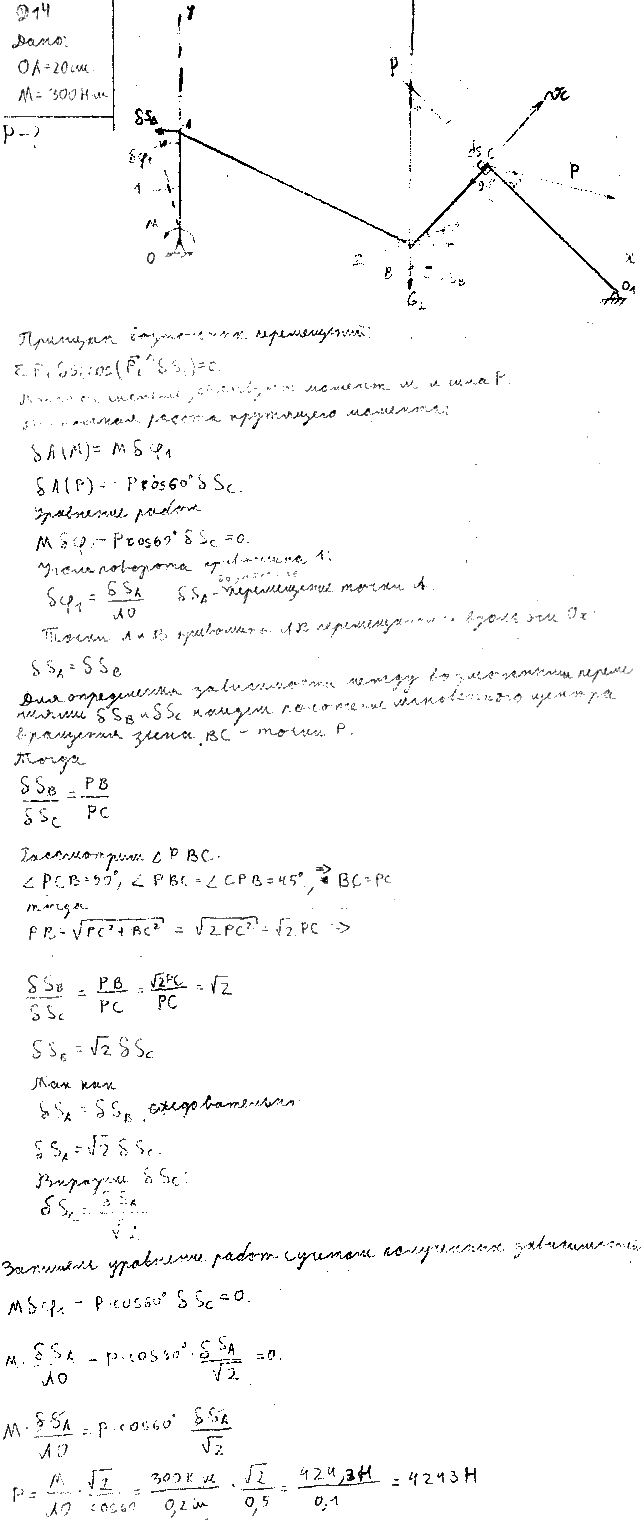 Д14
Дано:
OA=20см.
M=300Н·м
P-?
y
δSA
A
δφ1
1
M
O
P
C
P
2
B
x
O1
Принцип возможных перемещений:
возможная работа крутящего момента:
δA(M)= Mδφ1
δA(P)=- Pcos60°δSc.
Уравнение работ
Mδφ1-Pcos60° δSc=0.
Угол поворота кривошипа 1:
δφ1 = δSA/AO δSA- возможное перемещение точки A.
Точки A и B кривошипа AB вдоль оси Ox
δSA=δSB
Для определения зависимости между возможными переме
ниями δSB и δSc найдем положение мгновенного центра
вращения звена BC - точки P.
Тогда
δSB/δSC = PB/PC
Рассмотрим ∠PBC.
∠PCB=90°, ∠PBC=∠CPB=45°, => BC=PC
тогда
PB=√PC²+BC² = √2PC² = √2 PC =>
δSB/δSc = PB/PC = √2PC/PC = √2
δSB=√2 δSc
Так как
δSA=δSB, следовательно
δSA=√2 δSc.
Выразим δSc:
δSc=δSA/√2
Запишем уравнение работ с учетом полученных зависимостей
Mδφ1 - P·cos60° δSc=0.
M·δSA/AO - P·cos60°·δSA/√2 =0.
M·δSA/AO = P·cos60° δSA/√2
P= M/AO · √2/cos60 = 300Н·м/0,2м · √2/0,5 = 424,3Н/0,1 = 4243Н